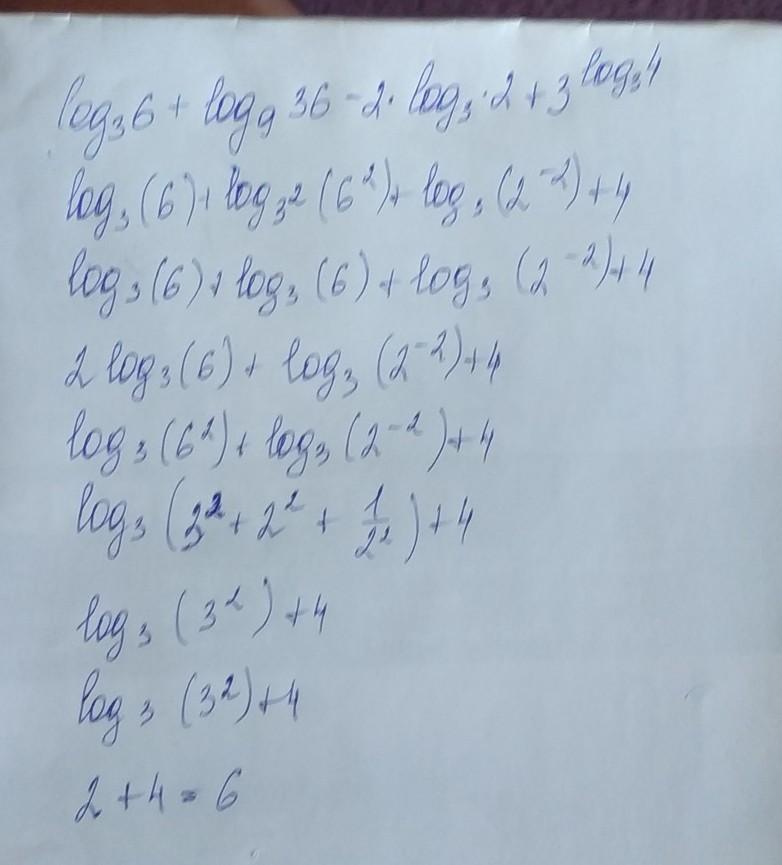 log₃6 + log₉ 36 - 2 · log₃ · 2 + 3^log₃4
log₃(6) + log₃²(6²) + log₃(2⁻²) + 4
log₃(6) + log₃(6) + log₃(2⁻²) + 4
2 log₃(6) + log₃(2⁻²) + 4
log₃(6²) + log₃(2⁻²) + 4
log₃(3² + 2² + 1/2²) + 4
log₃(3²) + 4
log₃(3²) + 4
2 + 4 = 6